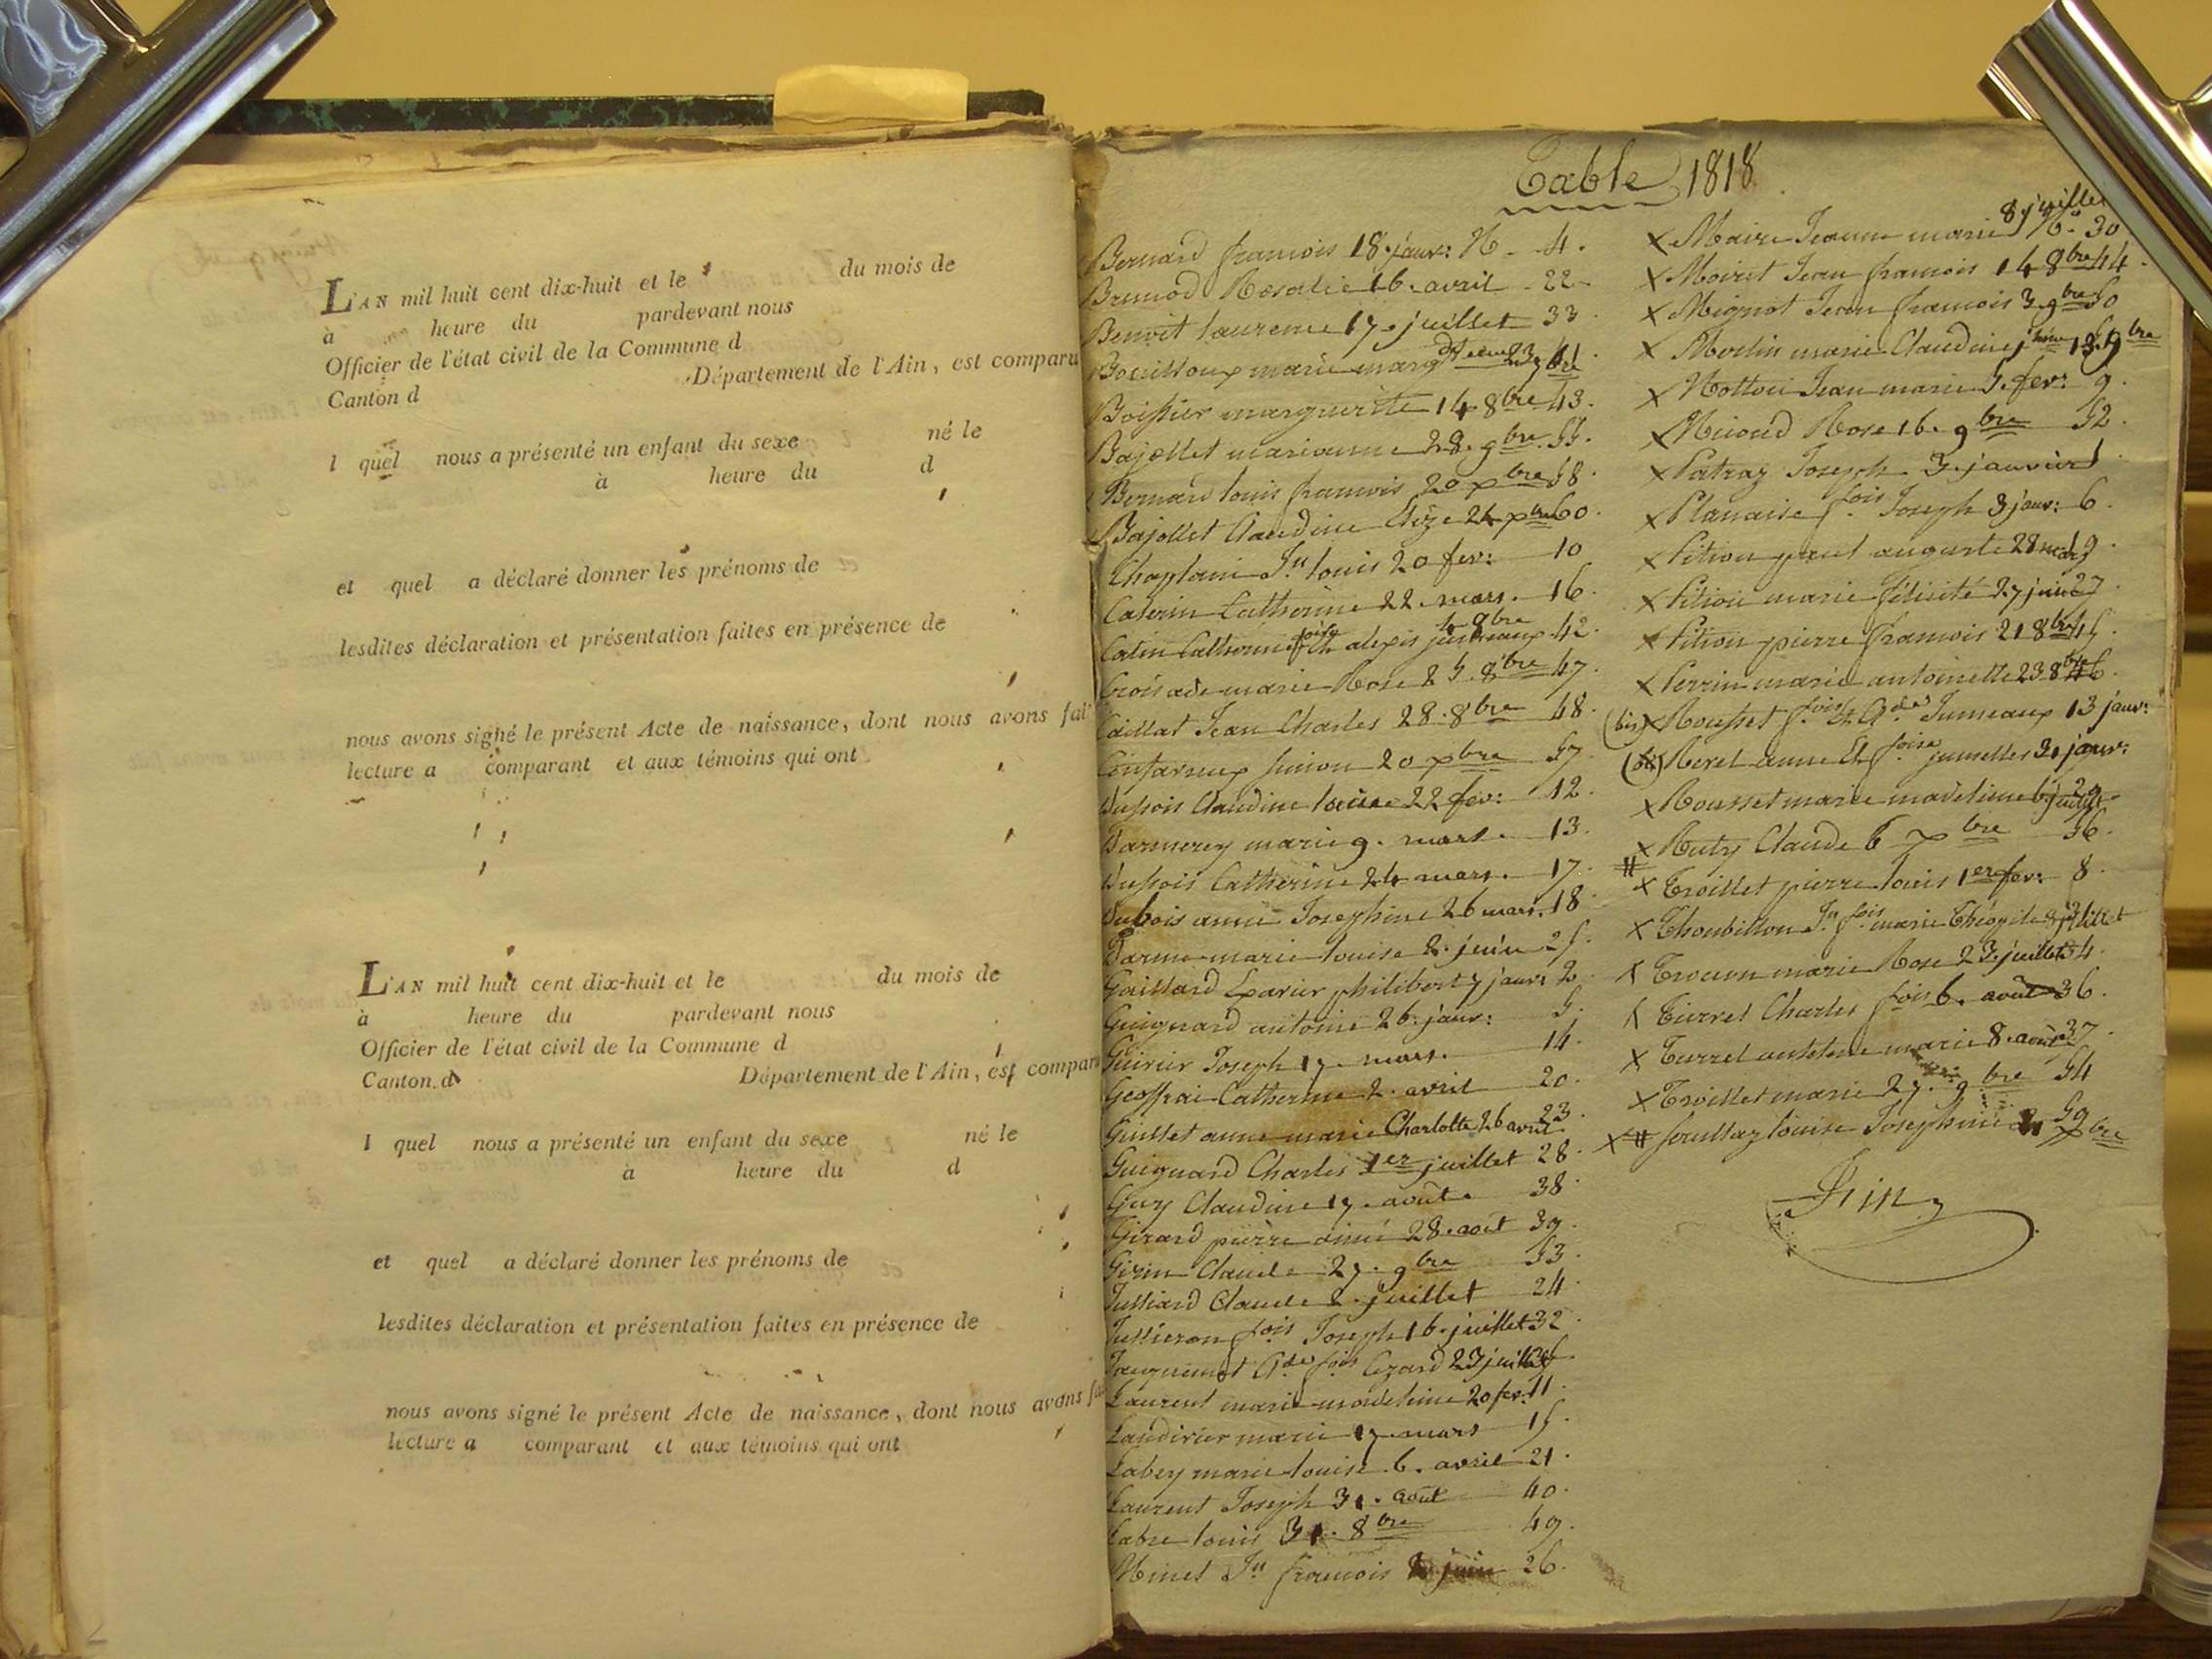 L'AN mil huit cent dix-huit et le du mois de
à heure du pardevant nous
Officier de l'état civil de la Commune d
Canton d Département de l'Ain, est comparu
l quel nous a présenté un enfant du sexe né le
à heure du d
et quel a déclaré donner les prénoms de
lesdites déclaration et présentation faites en présence de
nous avons signé le présent Acte de naissance, dont nous avons fai
lecture a comparant et aux témoins qui ont
L'AN mil huit cent dix-huit et le du mois de
à heure du pardevant nous
Officier de l'état civil de la Commune d
Canton d Département de l'Ain, est compar
l quel nous a présenté un enfant du sexe né le
à heure du d
et quel a déclaré donner les prénoms de
lesdites déclaration et présentation faites en présence de
nous avons signé le présent Acte de naissance, dont nous avons fai
lecture a comparant et aux témoins qui ont
Table 1818
Bernard francois 18 janv: N 4.
Brunod Rosalie 16. avril 22
Benoit laurence 17. juillet 33
marie 41
Boissier marguerite 14 8bre 43.
Bajollet marianne 28. 9bre 55.
Bernard louis francois 20 xbre 58
Bajollet Claudine 24 xbre 60.
Chaplain Jn louis 20 fev: 10
Caterin Catherine 22. mars. 16.
Catin Catherine alexis jumeaux 4 8bre 42.
Croisade marie Rose 25. 8bre 47.
Caillat Jean Charles 28. 8bre 48.
20 xbre 57
Dussois Claudine louise 22 fev: 12.
Darmerey marie 9. mars. 13.
Dussois Catherine 24 mars. 17.
Dubois anne Josephine 26 mars. 18
Darme marie louise 2. juin 25.
Gaillard Xavier philibert 7 janv: 2.
Guignard antoine 26. janv: 5.
Guirier Joseph 17. mars. 14.
Geoffrai Catherine 2. avril 20.
Guillet anne marie Charlotte 26 avril 23.
Guignard Charles 1er juillet 28.
Guy Claudine 17. août. 38.
Girard pierre aimé 28. août 39.
Girin Claude 27. 9bre 53.
Julliard Claude 2. juillet 24
Jullieron fois Joseph 16. juillet 32.
Cde fois 23 juillet
Laurent marie madeleine 20 fev: 11.
Laudirier marie 17. mars 15.
Labey marie louise 6. avril 21.
Laurent Joseph 31. août 40.
Labre louis 31. 8bre 49.
Minet Jn francois juin 26.
8 juillet
X Maire Jeanne marie No 30
X Moiret Jean francois 14 8bre 44
X Mignot Jean francois 3. 9bre 50
X marie Claudine
X Mottou Jean marie 5. fev: 9.
X Micoud Rose 16. 9bre 52.
X Patraz Joseph 3. janvier 1
X Planaise fois Joseph 3 janv: 6.
X Pition paul auguste 28 mars 19.
X Pition marie félicité 27 juin 27
X Pition pierre francois 21 8bre 45.
X Perrin marie antoinette 23 8bre 46.
(bis) X Rousset fois et Cde Jumeaux 13 janv:
(bis) X anne Et foise jumelles 31 janv:
X Rousset marie madeleine 6. juillet 29
X Ruty Claude 6 xbre 56.
# X Troillet pierre louis 1er fev: 8.
X Thoubillon Jn fois marie Théophile juillet
X marie Rose 23. juillet 34.
X Turrel Charles fois 6. août 36.
X Turrel antoine marie 8. août 37.
X Troillet marie 27. 9bre 54
X # louise Josephine 21 xbre 59
Fin